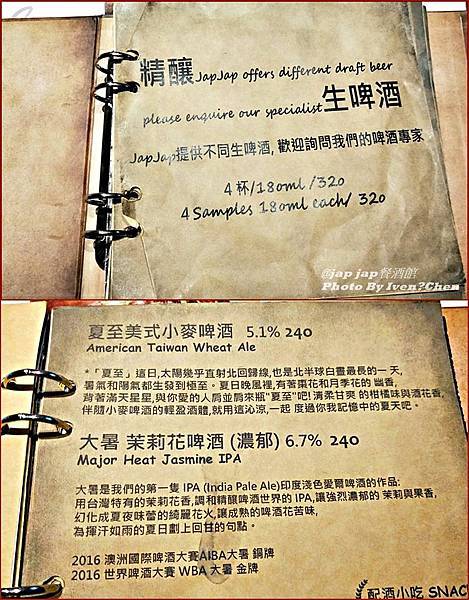 精釀JapJap offers different draft beer
please enquire our specialist生啤酒
JapJap提供不同生啤酒, 歡迎詢問我們的啤酒專家
4 杯/180ml /320
4 Samples 180ml each/ 320
@jap jap餐酒館
Photo By Iven?Chen
夏至美式小麥啤酒 5.1% 240
American Taiwan Wheat Ale
*「夏至」這日,太陽幾乎直射北回歸線,也是北半球白晝最長的一 天,
暑氣和陽氣都生發到極至。夏日晚風裡,有著棗花和月季花的 幽香,
背著滿天星星,與你愛的人肩並肩來瓶"夏至"吧! 清柔甘爽 的柑橘味與酒花香,
伴隨小麥啤酒的輕盈酒體,就用這沁涼,一起 度過你我記憶中的夏天吧。
大暑 茉莉花啤酒 (濃郁) 6.7% 240
Major Heat Jasmine IPA
大暑是我們的第一隻 IPA (India Pale Ale)印度淺色愛爾啤酒的作品:
用台灣特有的茉莉花香,調和精釀啤酒世界的 IPA,讓強烈濃郁的 茉莉與果香,
幻化成夏夜味蕾的綺麗花火,讓成熟的啤酒花苦味,
為揮汗如雨的夏日劃上回甘的句點。
2016 澳洲國際啤酒大賽AIBA大暑 銅牌
2016 世界啤酒大賽 WBA 大暑 金牌
配酒小吃 SNAC